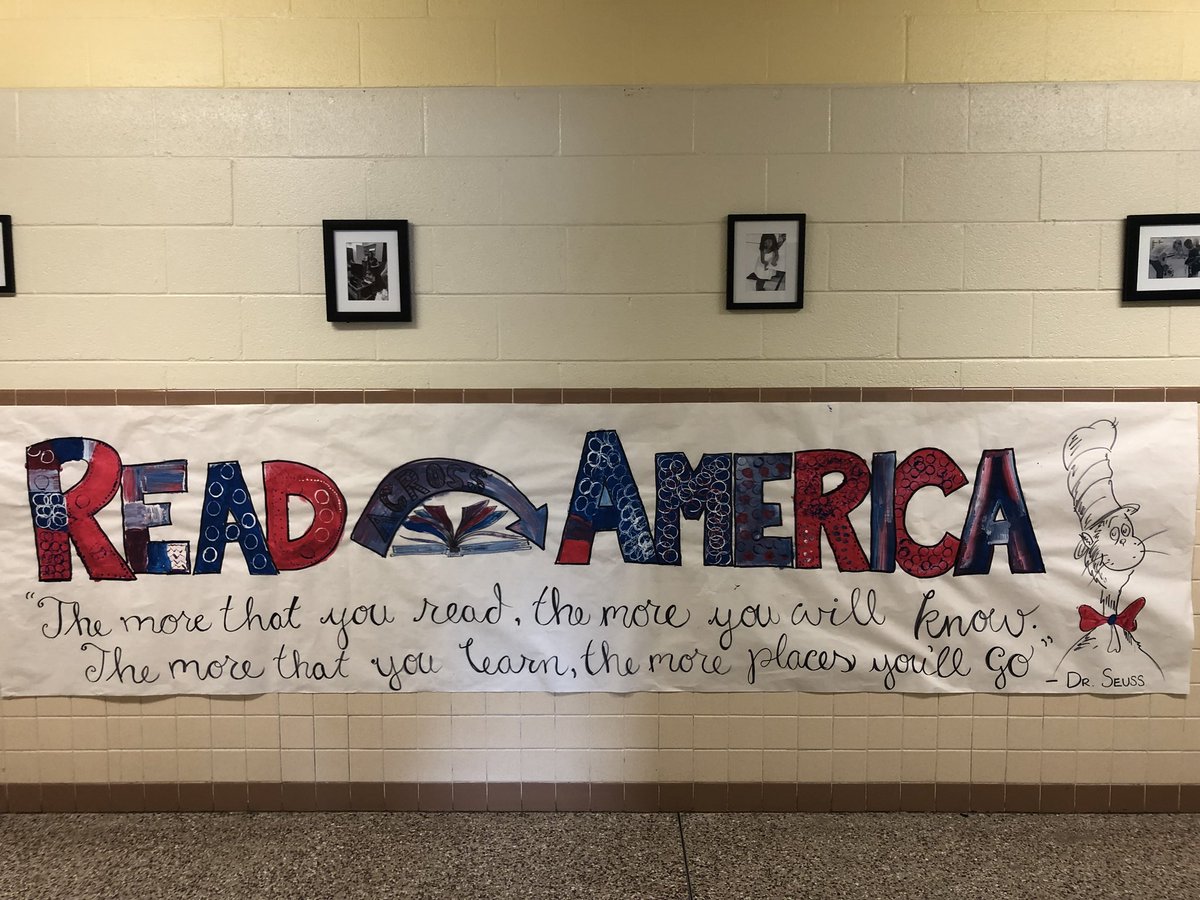 READ ACROSS AMERICA
"The more that you read, the more you will know.
The more that you learn, the more places you'll Go"
- DR. SEUSS